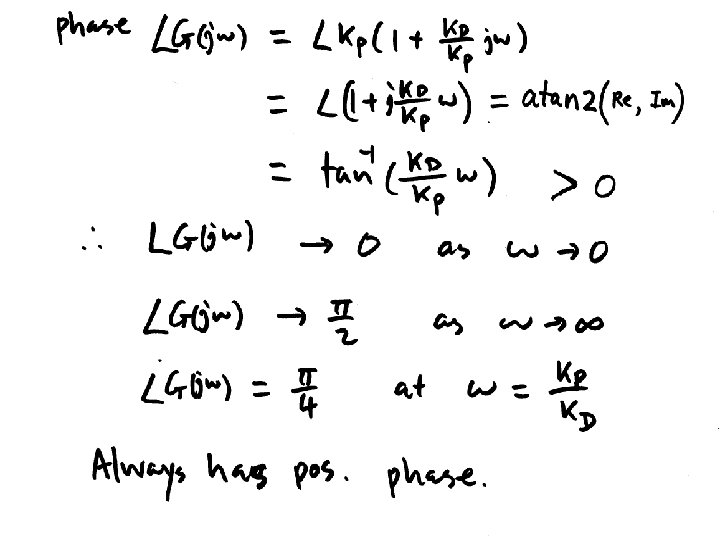 phase ∠G(jω) = ∠K_P(1 + K_D/K_P jω)
= ∠(1 + j K_D/K_P ω) = atan2(Re, Im)
= tan⁻¹(K_D/K_P ω) > 0
∴ ∠G(jω) → 0 as ω → 0
∠G(jω) → π/2 as ω → ∞
∠G(jω) = π/4 at ω = K_P/K_D
Always has pos. phase.